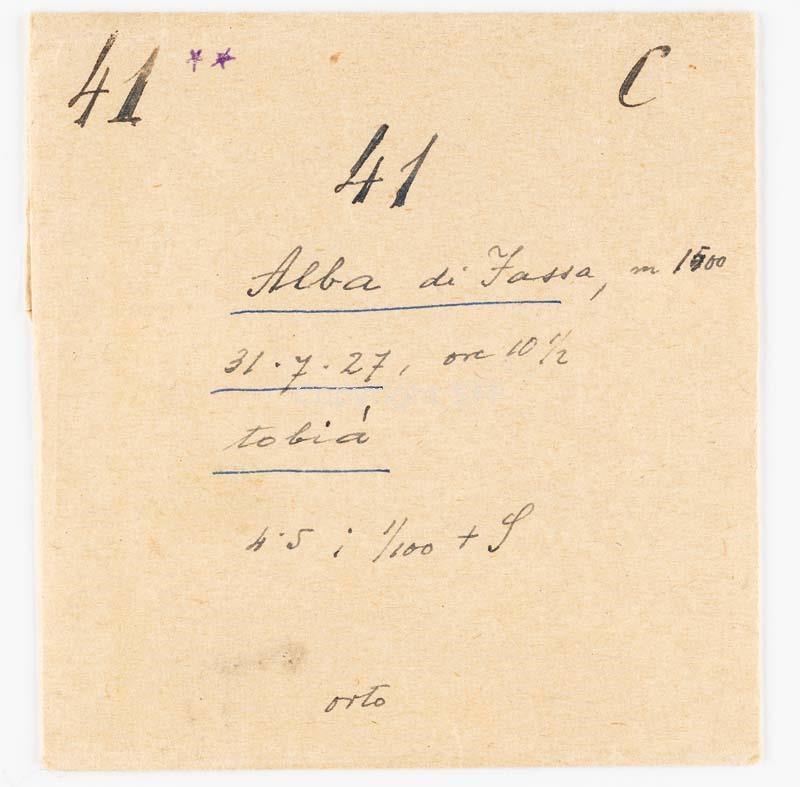 41 ** C
41
Alba di Fassa, m 1500
31.7.27, ore 10 1/2
tobiá
4.5 ; 1/100 + S
orto